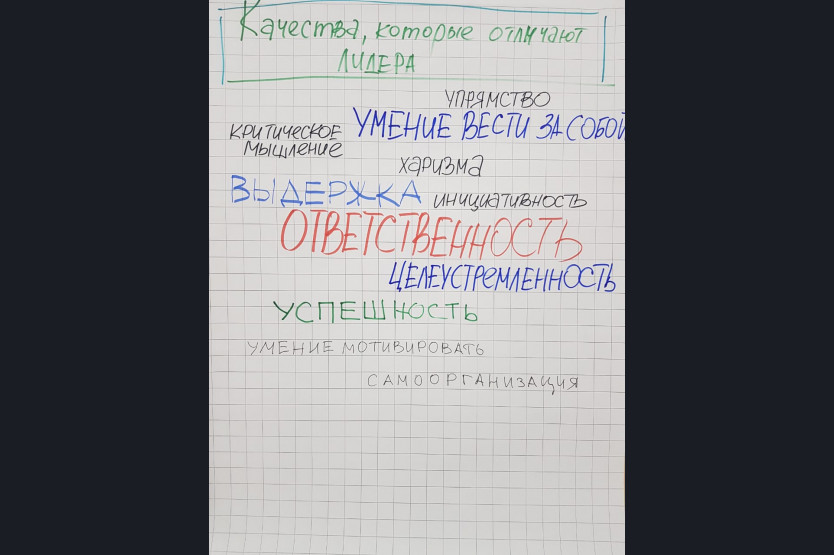 Качества, которые отличают
ЛИДЕРА
УПРЯМСТВО
УМЕНИЕ ВЕСТИ ЗА СОБОЙ
КРИТИЧЕСКОЕ
МЫШЛЕНИЕ
ХАРИЗМА
ВЫДЕРЖКА
ИНИЦИАТИВНОСТЬ
ОТВЕТСТВЕННОСТЬ
ЦЕЛЕУСТРЕМЛЕННОСТЬ
УСПЕШНОСТЬ
УМЕНИЕ МОТИВИРОВАТЬ
САМООРГАНИЗАЦИЯ